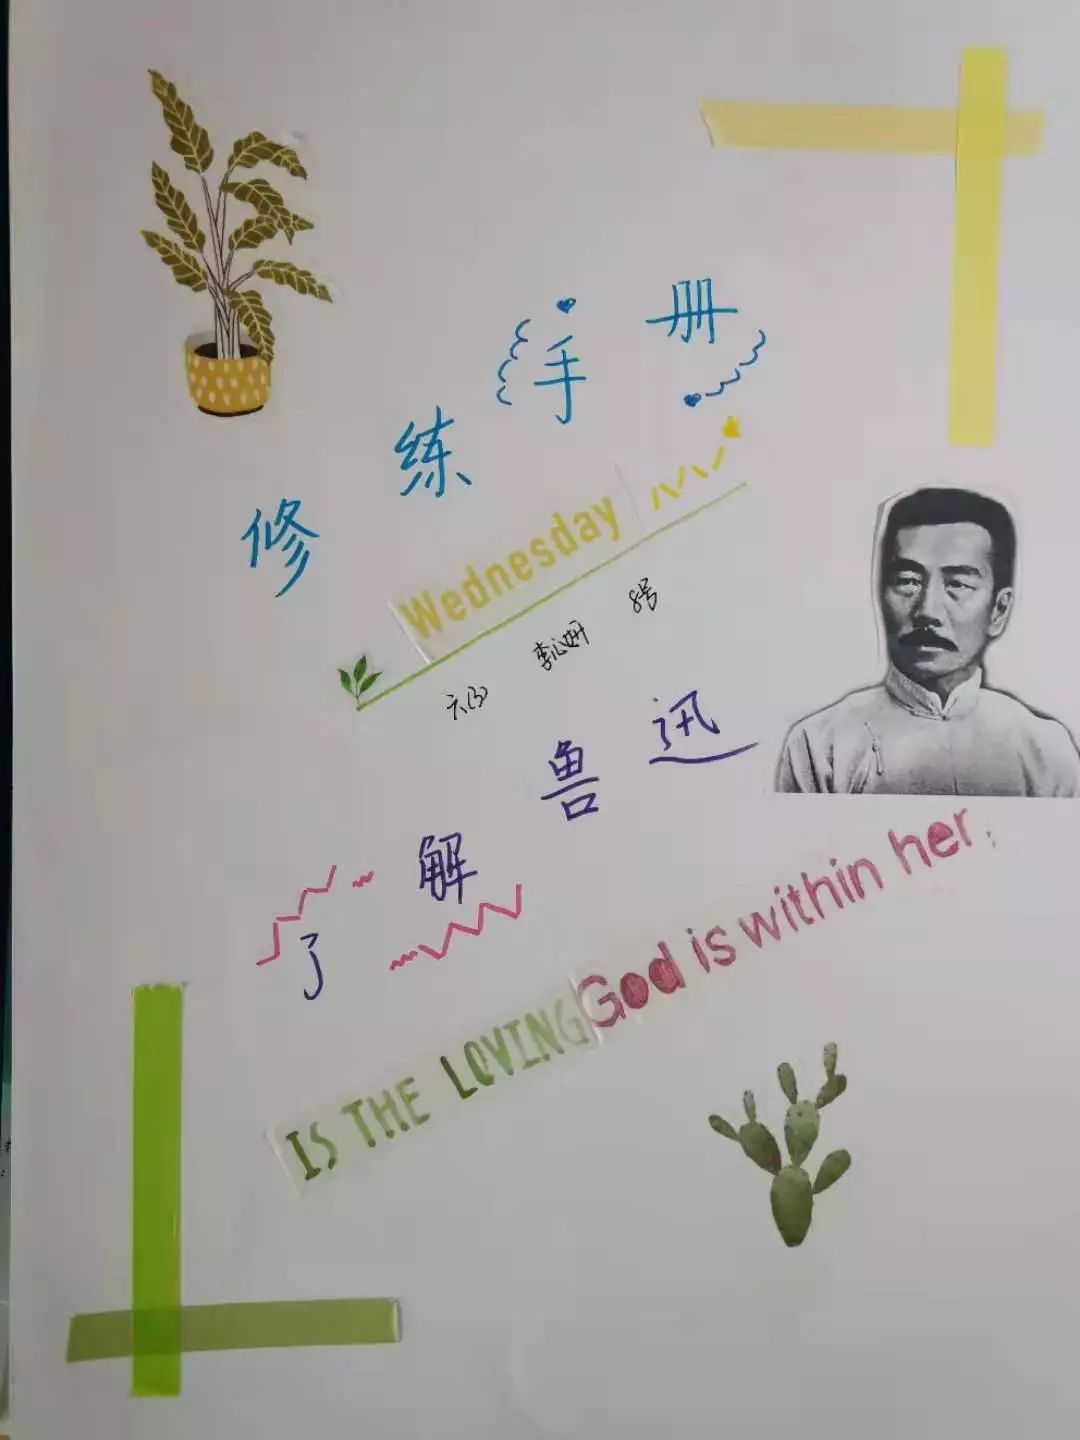 修练手册
Wednesday
六(3) 李心妍 8号
了解鲁迅
IS THE LOVING God is within her,